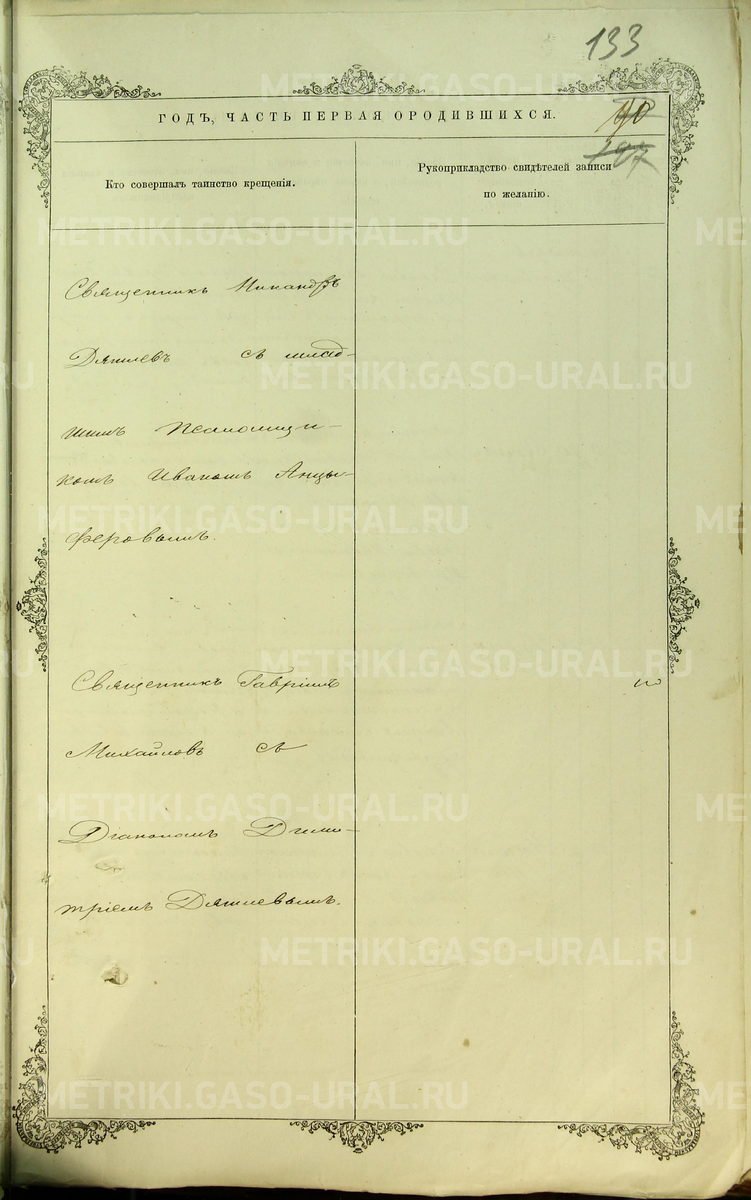 133
ГОДЪ, ЧАСТЬ ПЕРВАЯ ОРОДИВШИХСЯ.
Кто совершалъ таинство крещенія.
Рукоприкладство свидѣтелей записи
по желанію.
Священникъ Никандръ
Дягилевъ съ млад-
шимъ Псаломщи-
комъ Иваномъ Анцы-
феровымъ.
Священникъ Гавріилъ
Михайловъ съ
Діакономъ Дими-
тріемъ Дягилевымъ.
METRIKI.GASO-URAL.RU